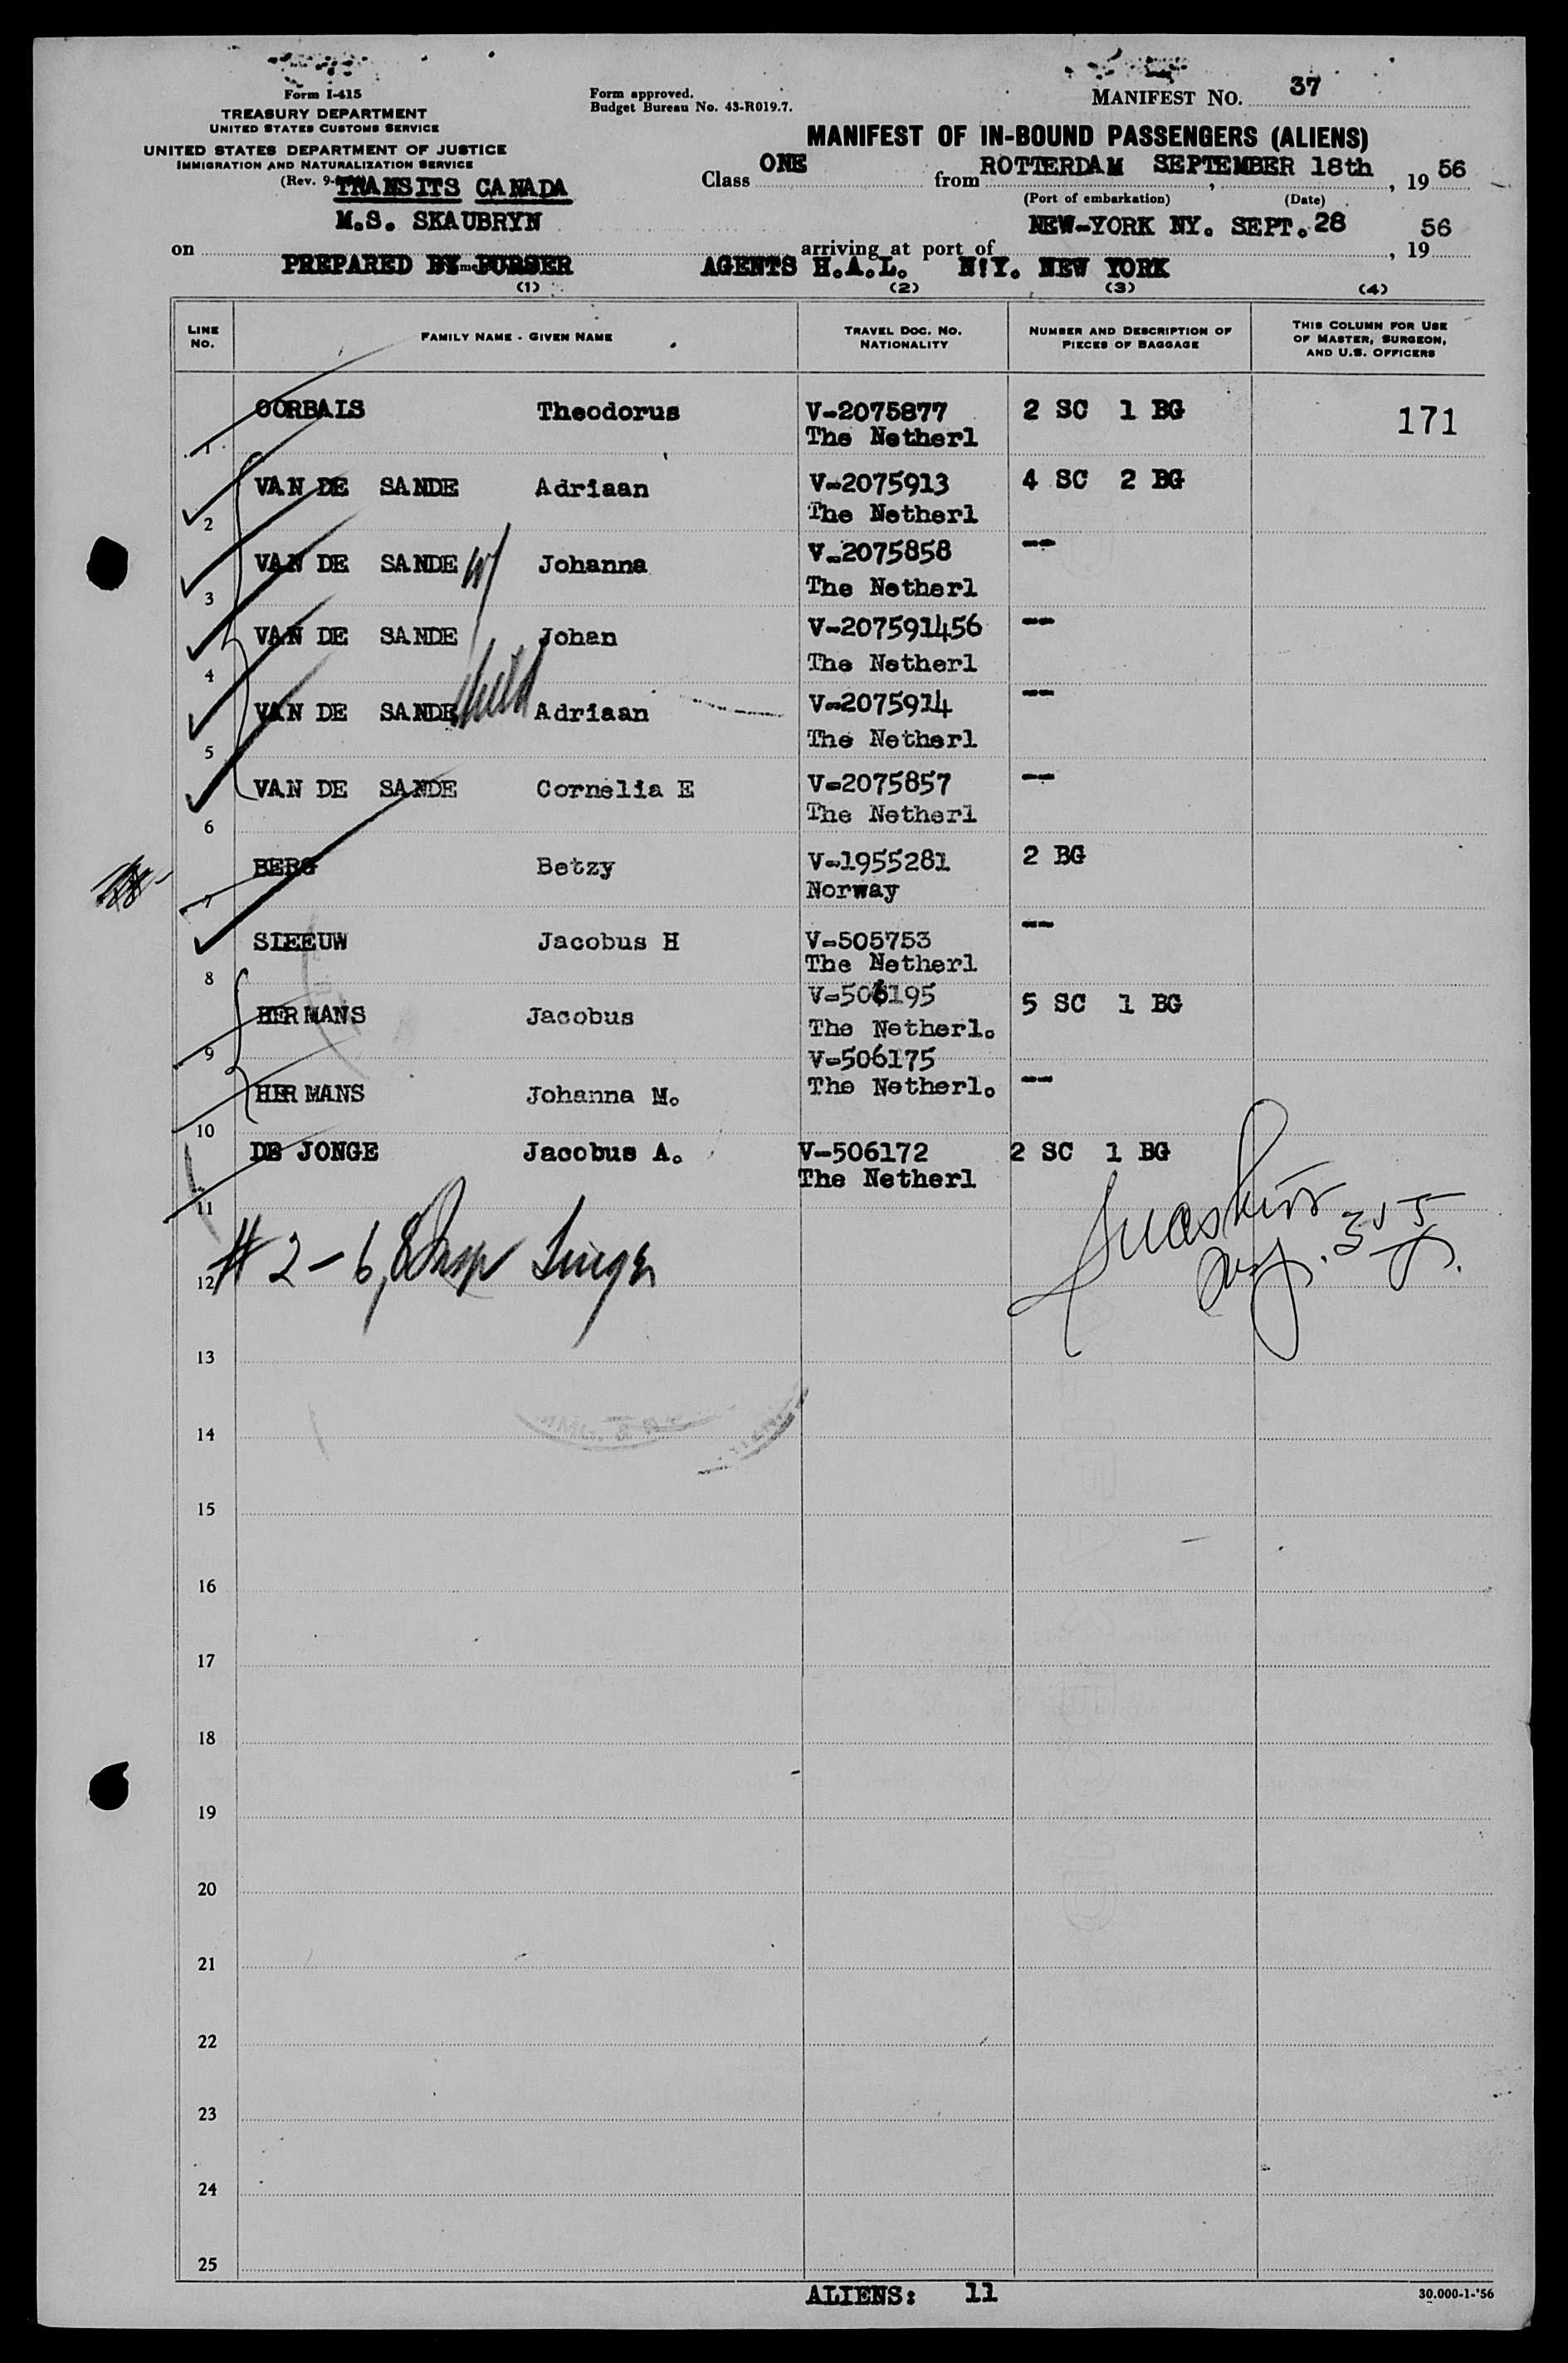 Form I-415
TREASURY DEPARTMENT
UNITED STATES CUSTOMS SERVICE
UNITED STATES DEPARTMENT OF JUSTICE
IMMIGRATION AND NATURALIZATION SERVICE
(Rev. 9-
Form approved.
Budget Bureau No. 43-R019.7.
MANIFEST NO. 37
MANIFEST OF IN-BOUND PASSENGERS (ALIENS)
TRANSITS CANADA
Class ONE from ROTTERDAM , SEPTEMBER 18th , 19 56
(Port of embarkation) (Date)
on M.S. SKAUBRYN arriving at port of NEW-YORK NY. SEPT. 28 , 19 56
PREPARED BY PURSER AGENTS H.A.L. N!Y. NEW YORK
(1) (2) (3) (4)
LINE No. FAMILY NAME - GIVEN NAME TRAVEL DOC. NO. NATIONALITY NUMBER AND DESCRIPTION OF PIECES OF BAGGAGE THIS COLUMN FOR USE OF MASTER, SURGEON, AND U.S. OFFICERS
1 OORBAIS Theodorus V-2075877 2 SC 1 BG 171
The Netherl
2 VAN DE SANDE Adriaan V-2075913 4 SC 2 BG
The Netherl
3 VAN DE SANDE W Johanna V-2075858 --
The Netherl
4 VAN DE SANDE Johan V-207591456 --
The Netherl
5 VAN DE SANDE Adriaan V-2075914 --
The Netherl
6 VAN DE SANDE Cornelia E V-2075857 --
The Netherl
7 BERG Betzy V-1955281 2 BG
Norway
8 SIEEUW Jacobus H V-505753 --
The Netherl
9 HERMANS Jacobus V-506195 5 SC 1 BG
The Netherl.
10 HERMANS Johanna M. V-506175 --
The Netherl.
11 DE JONGE Jacobus A. V-506172 2 SC 1 BG
The Netherl
12 # 2-6, 8 Insp
13
14
15
16
17
18
19
20
21
22
23
24
25
ALIENS: 11
30.000-1-'56